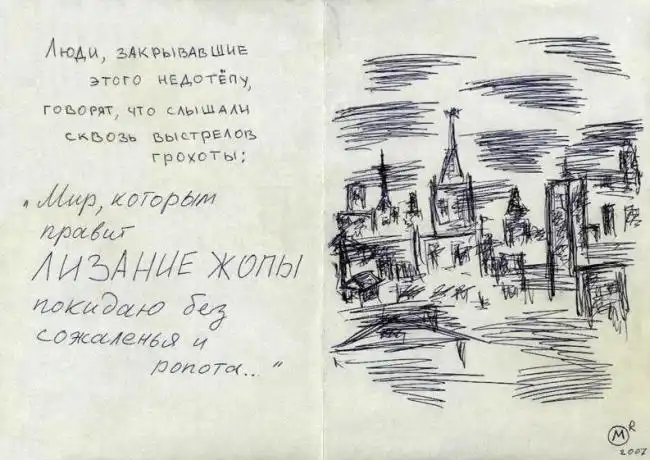 Люди, закрывавшие
этого недотёпу,
говорят, что слышали
сквозь выстрелов
грохоты:
„Мир, которым
правит
ЛИЗАНИЕ ЖОПЫ
покидаю без
сожаленья и
ропота..."
M R
2007